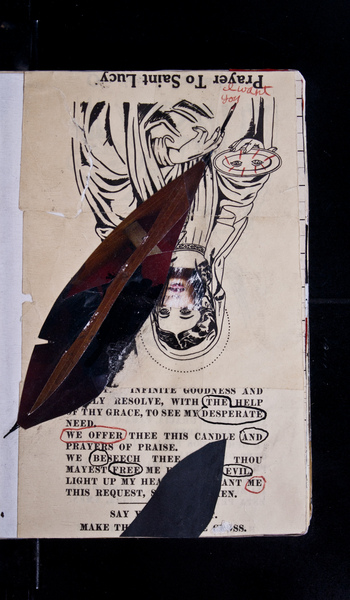 Prayer To Saint Lucy
I want
you
INFINITE GOODNESS AND
RESOLVE, WITH THE HELP
OF THY GRACE, TO SEE MY DESPERATE
NEED.
WE OFFER THEE THIS CANDLE AND
PRAYERS OF PRAISE.
WE BESEECH THEE THOU
MAYEST FREE ME EVIL
LIGHT UP MY ME
THIS REQUEST,
SAY
MAKE